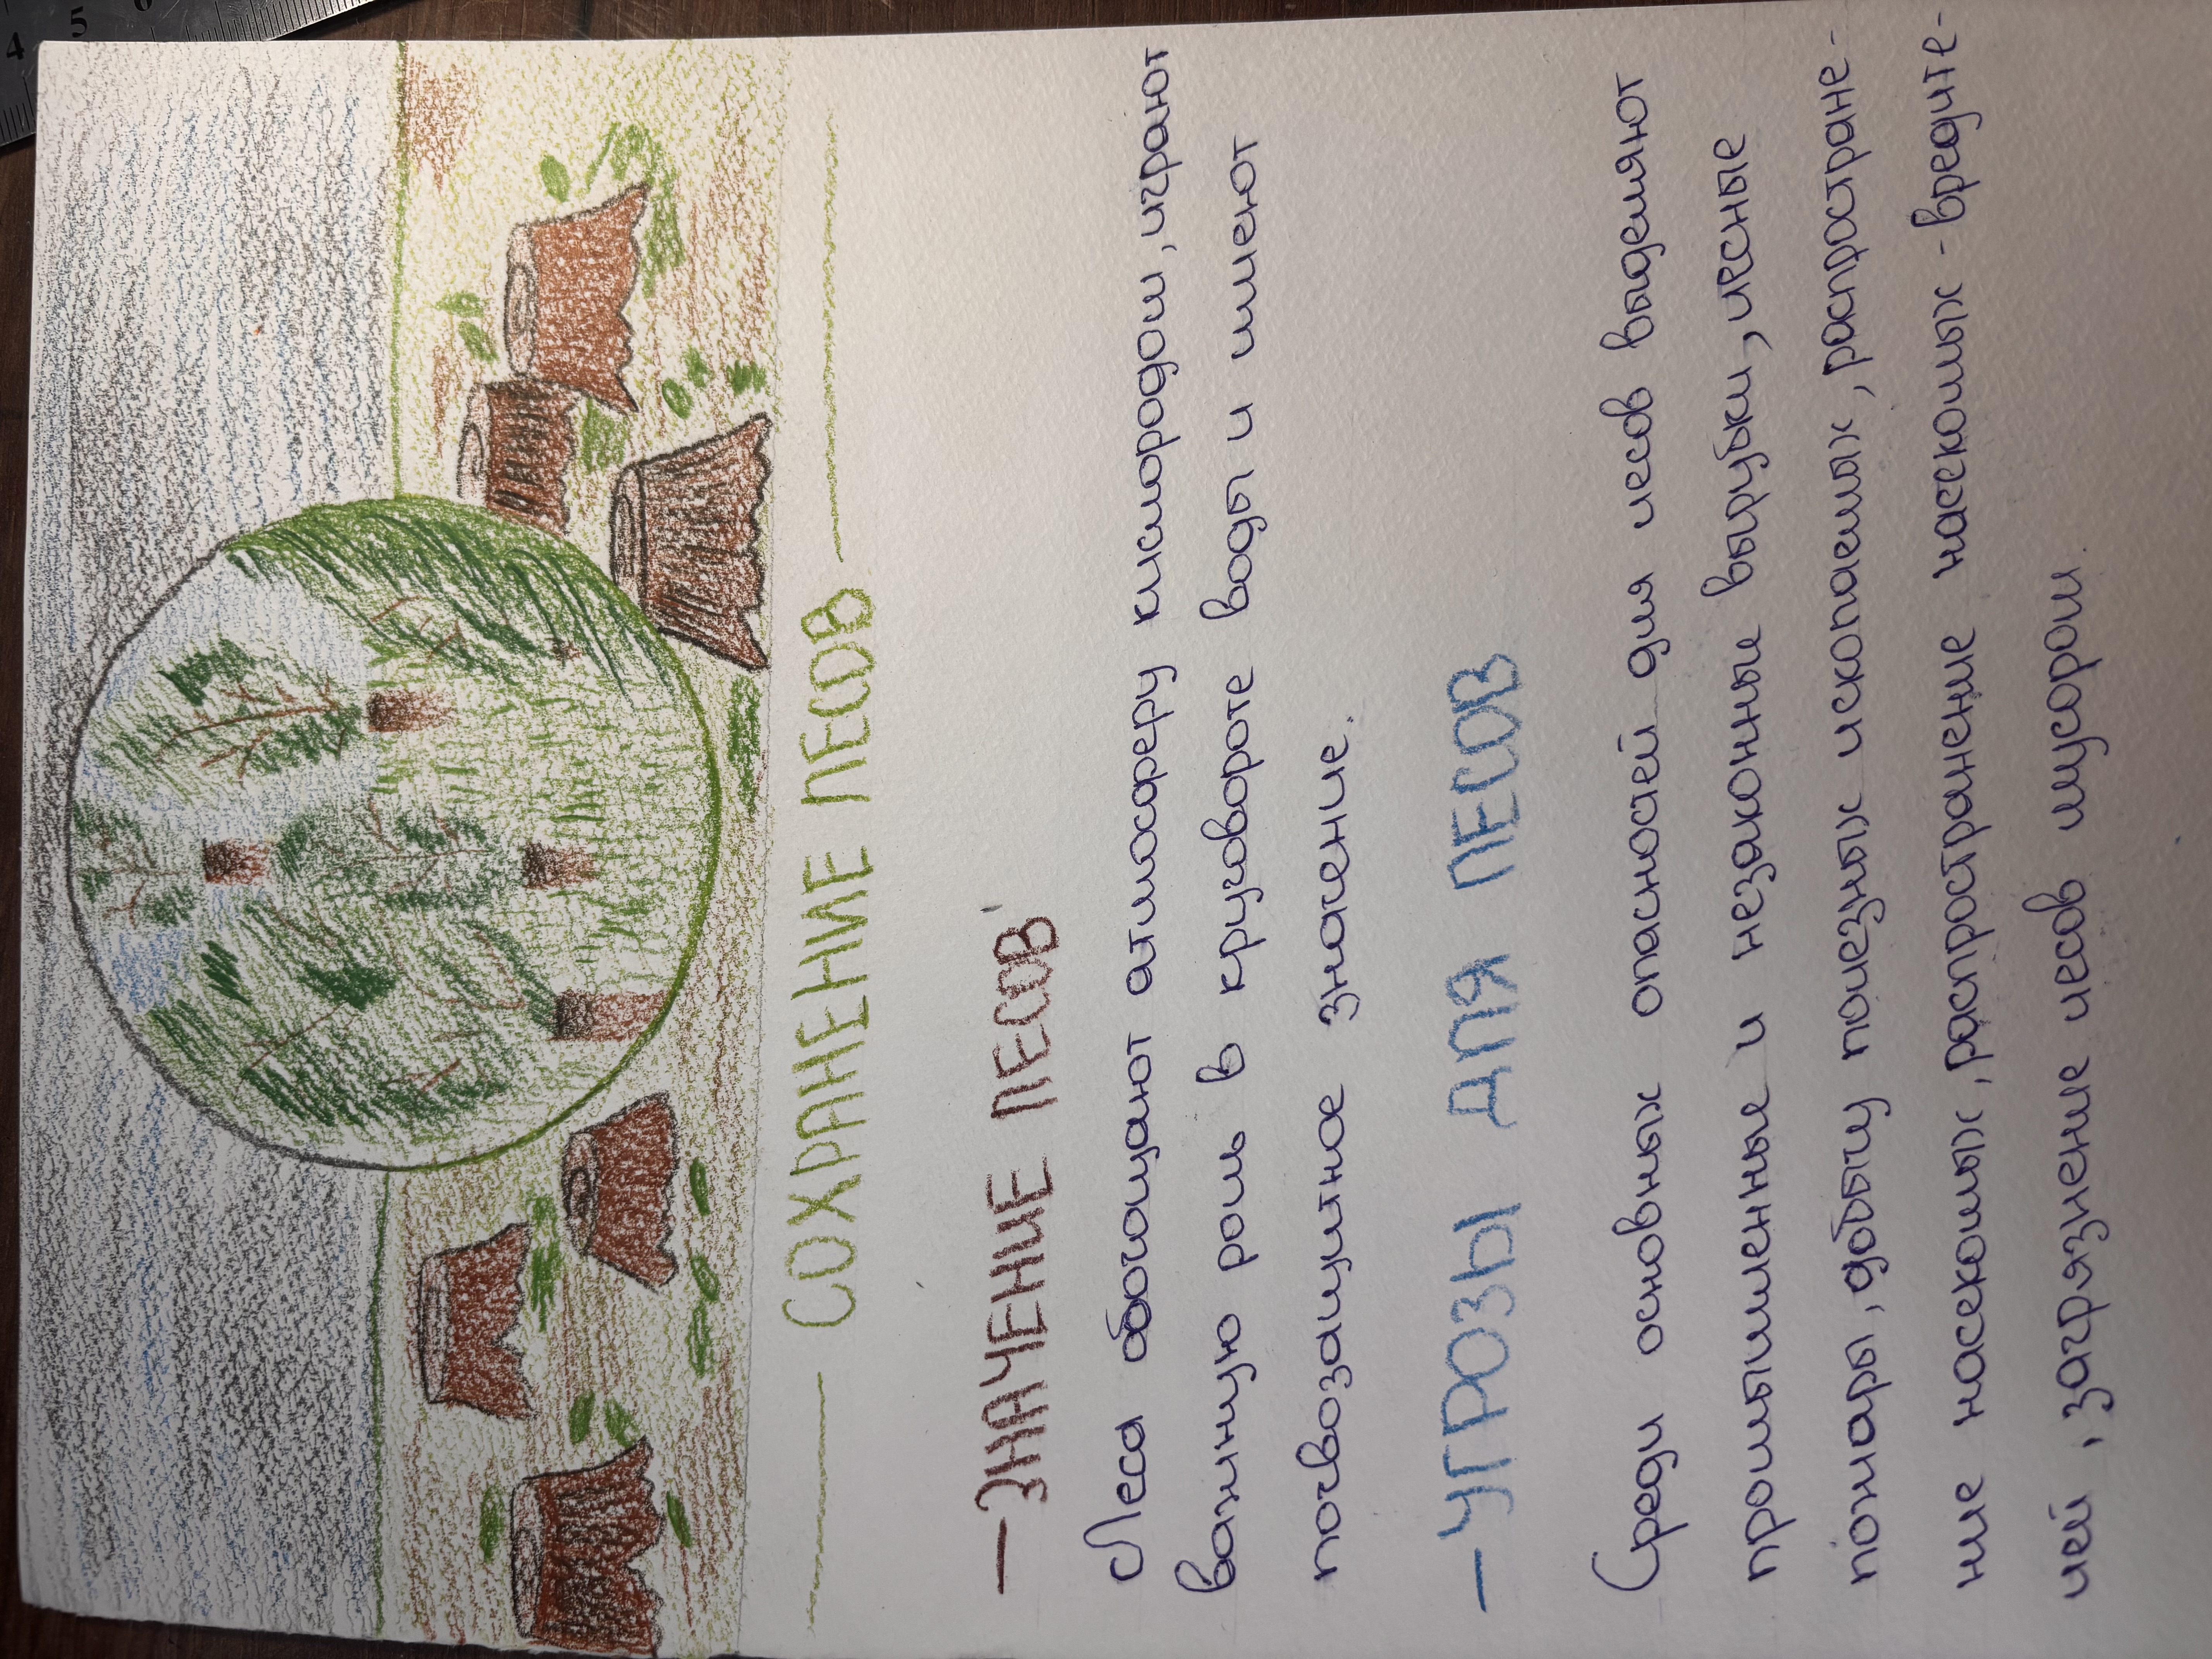 4 5 6
— СОХРАНЕНИЕ ЛЕСОВ —
— ЗНАЧЕНИЕ ЛЕСОВ
Леса обогащают атмосферу кислородом, играют
важную роль в круговороте воды и имеют
почвозащитное значение.
— УГРОЗЫ ДЛЯ ЛЕСОВ
Среди основных опасностей для лесов выделяют
промышленные и незаконные вырубки, лесные
пожары, добычу полезных ископаемых, распростране-
ние насекомых, распространение насекомых - вредите-
лей, загрязнение лесов мусором.